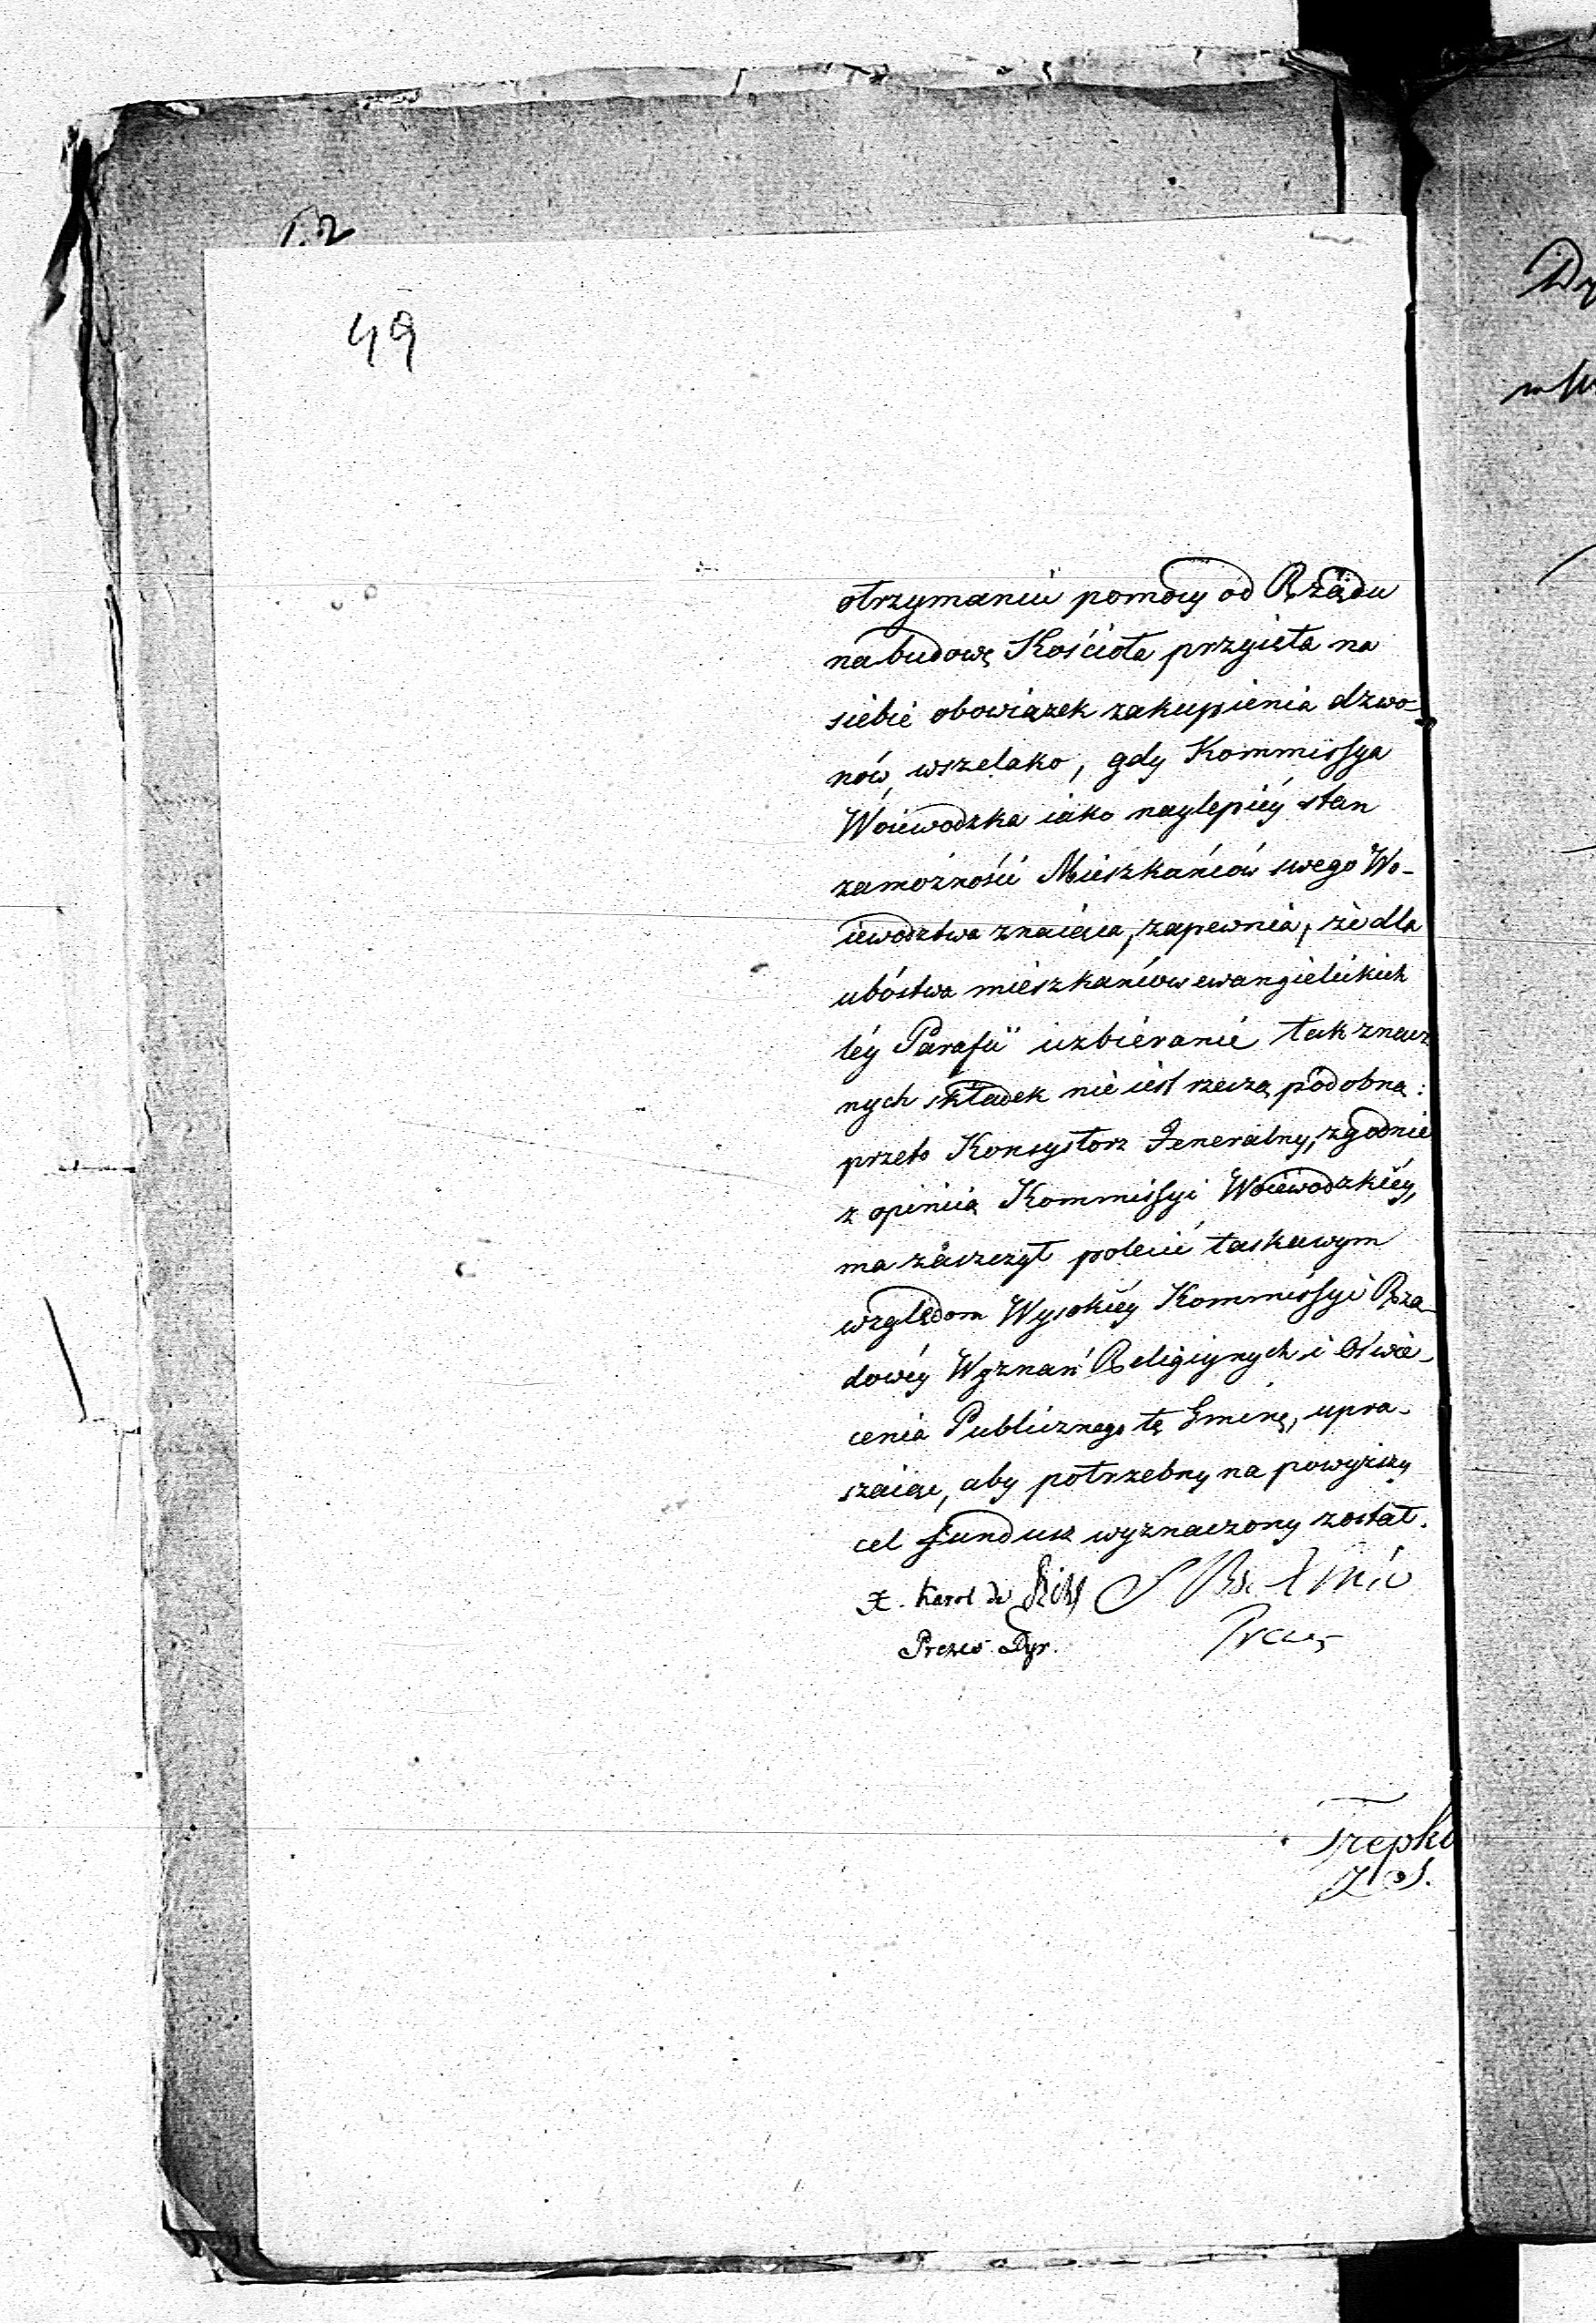 49
otrzymaniu pomocy od Rządu
na budowę Kościoła przyięła na
siebie obowiązek zakupienia dzwo-
nów, wszelako, gdy Kommissya
Woiewodzka iako naylepiéy stan
zamożności Mieszkańców swego Wo-
iewodztwa znaiąca, zapewnia, że dla
ubóstwa mieszkańców ewangielickich
téy Parafii uzbieranie tak znacz
nych składek nie iest rzeczą podobną:
przeto Konsystorz Jeneralny, zgodnie
z opinią Kommissyi Woiewodzkiéy,
ma zaszczyt polecić łaskawym
względom Wysokiéy Kommissyi Rzą-
dowéy Wyznań Religiynych i Oświe-
cenia Publicznego tę Gminę, upra-
szaiąc, aby potrzebny na powyższy
cel fundusz wyznaczony został.
X. Karol De
Prezes Dyr. Prezes